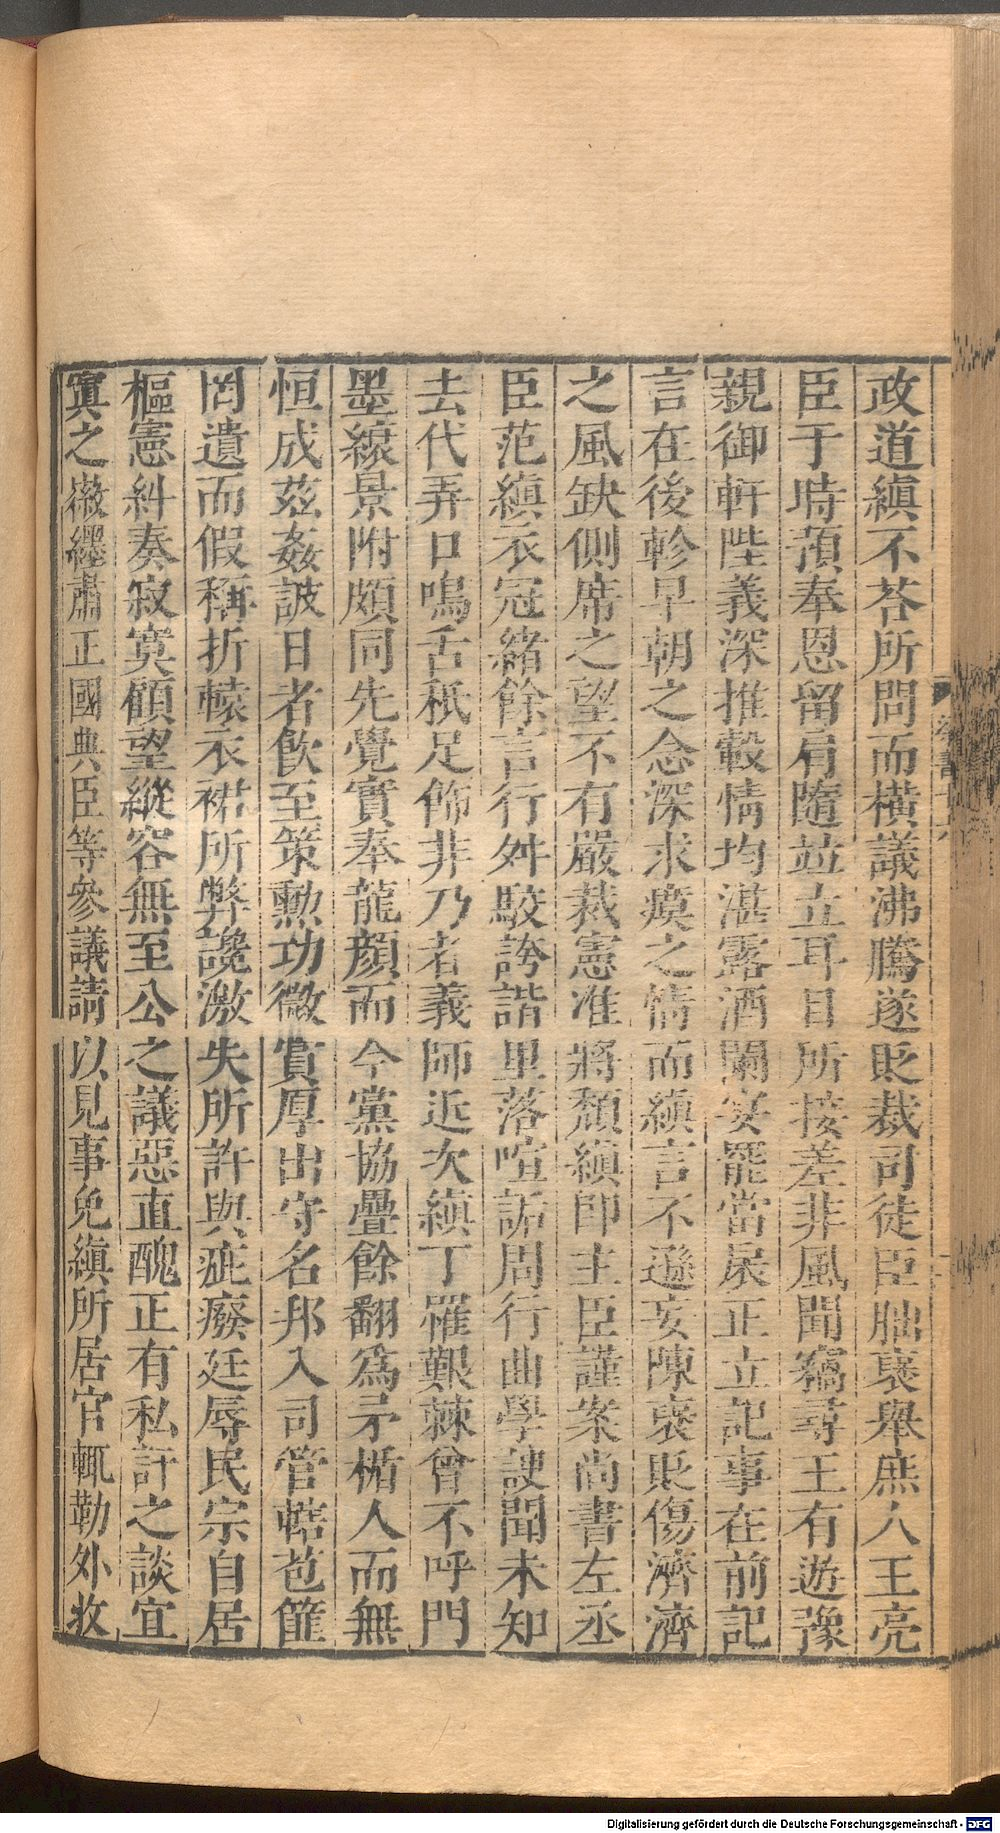 政道縝不荅所問而橫議沸騰遂貶裁司徒臣朏褒舉庶人王亮
臣于時預奉恩留肩隨竝立耳目所接差非風聞竊尋王有遊豫
親御軒陛義深推轂情均湛露酒闌宴罷當扆正立記事在前記
言在後軫早朝之念深求瘼之情而縝言不遜妄陳褒貶傷濟濟
之風缺側席之望不有嚴裁憲准將頹縝即主臣謹案尚書左丞
臣范縝衣冠緒餘言行舛駮誇諧里落喧詬周行曲學諛聞未知
去代弄口鳴舌祇足飾非乃者義師近次縝丁罹艱棘曾不呼門
墨縗景附頗同先覺實奉龍顏而今黨協舋餘翻爲矛楯人而無
恒成茲姦詖日者飲至策勲功微賞厚出守名邦入司管轄苞篚
罔遺而假稱折轅衣裙所弊讒激失所許與疵癈廷辱民宗自居
樞憲糾奏寂寞顧望縱容無至公之議惡直醜正有私訐之談宜
寘之徽纆肅正國典臣等參議請以見事免縝所居官輒勒外收
Digitalisierung gefördert durch die Deutsche Forschungsgemeinschaft - DFG